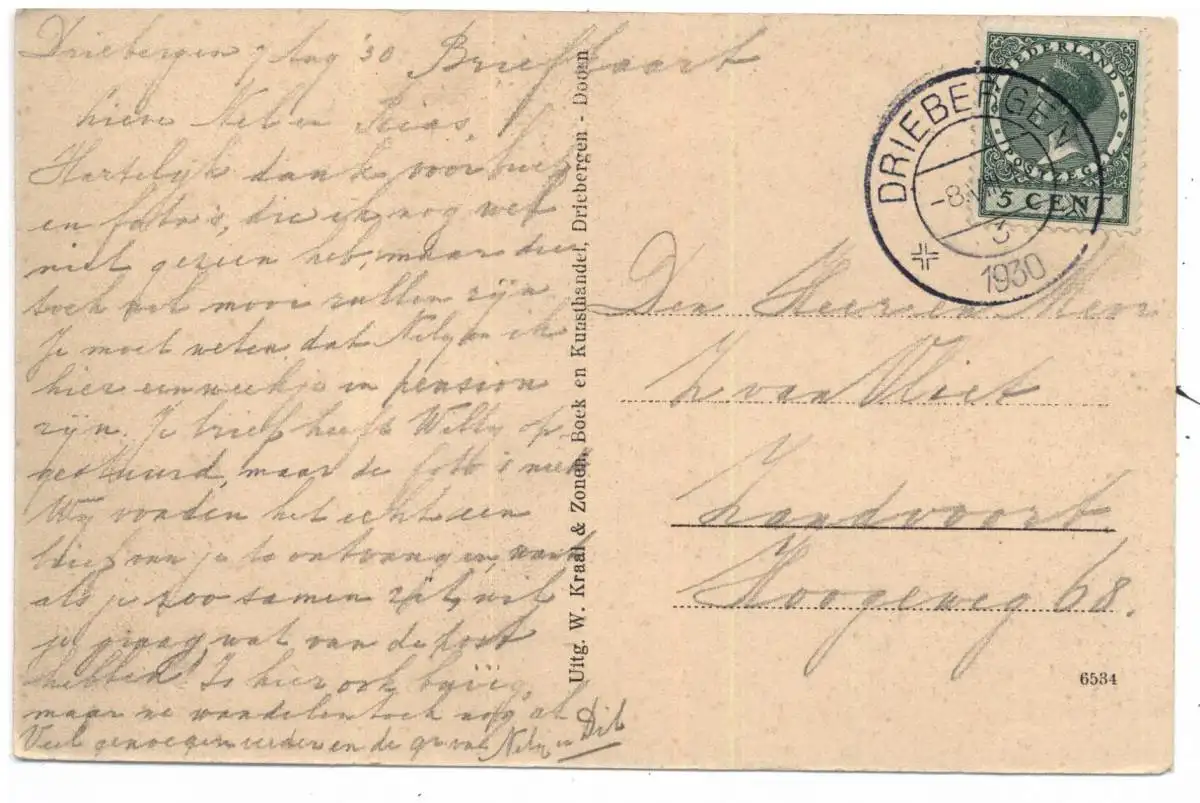 Driebergen 7 Aug '30 Briefkaart
Nel en
Hartelijk dank voor brief
en foto's, die ik nog wel
niet gezien heb, maar die
toch wel mooi zullen zijn.
Je moet weten dat Nelly en ik
hier een weekje in pension
zijn. Je brief heeft Willy op
gestuurd, maar de foto's niet.
Wij vonden het echt een
brief van je te ontvangen, want
als je zoo samen zit, wil
je graag wat van de post
hebben! Is hier ook buiig,
maar we wandelen toch nog al
Veel genoegen verder en de gr van Nelly en Dit
Uitg. W. Kraal & Zonen, Boek en Kunsthandel, Driebergen - Doorn
NEDERLAND
POSTZEGEL
5 CENT
DRIEBERGEN
-8.
3
1930
Den Heer en Mevr
L van Vliet
Zandvoort.
Hoogeweg 68.
6534